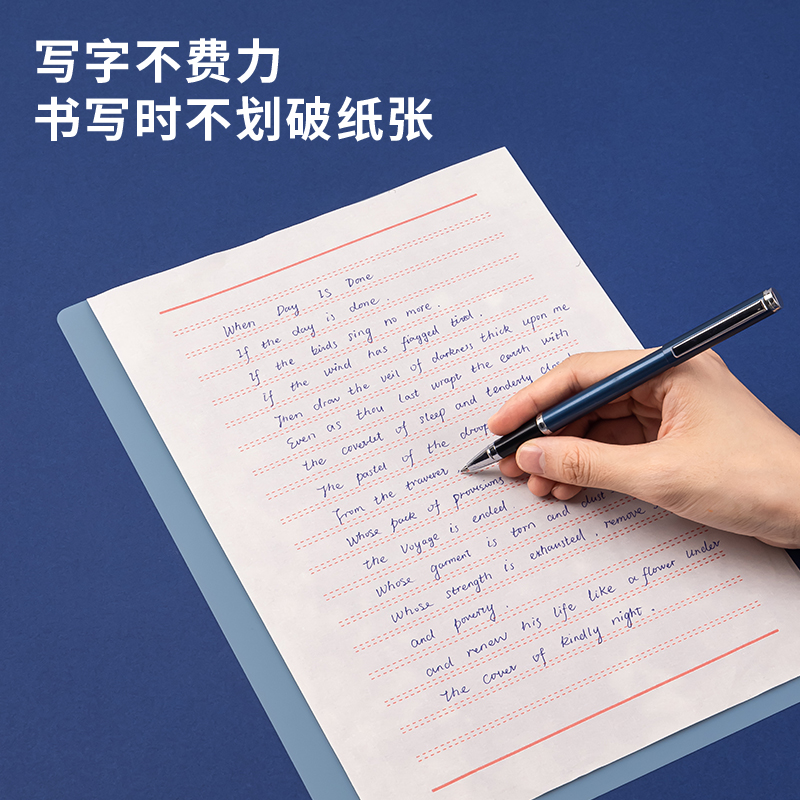 写字不费力
书写时不划破纸张
When Day IS Done
If the day is done
If the birds sing no more.
If the wind has fragged tired.
Then draw the veil of darkness thick upon me
Even as thou last wrapt the earth with
the coverlet of sleep and tenderly closed
The pastel of the droop
From the traverer
Whose pack of provisions
the Voyage is ended
Whose garment is torn and dust
Whose strength is exhausted, remove
and poverty.
and renew his life like a flower under
the cover of kindly night.